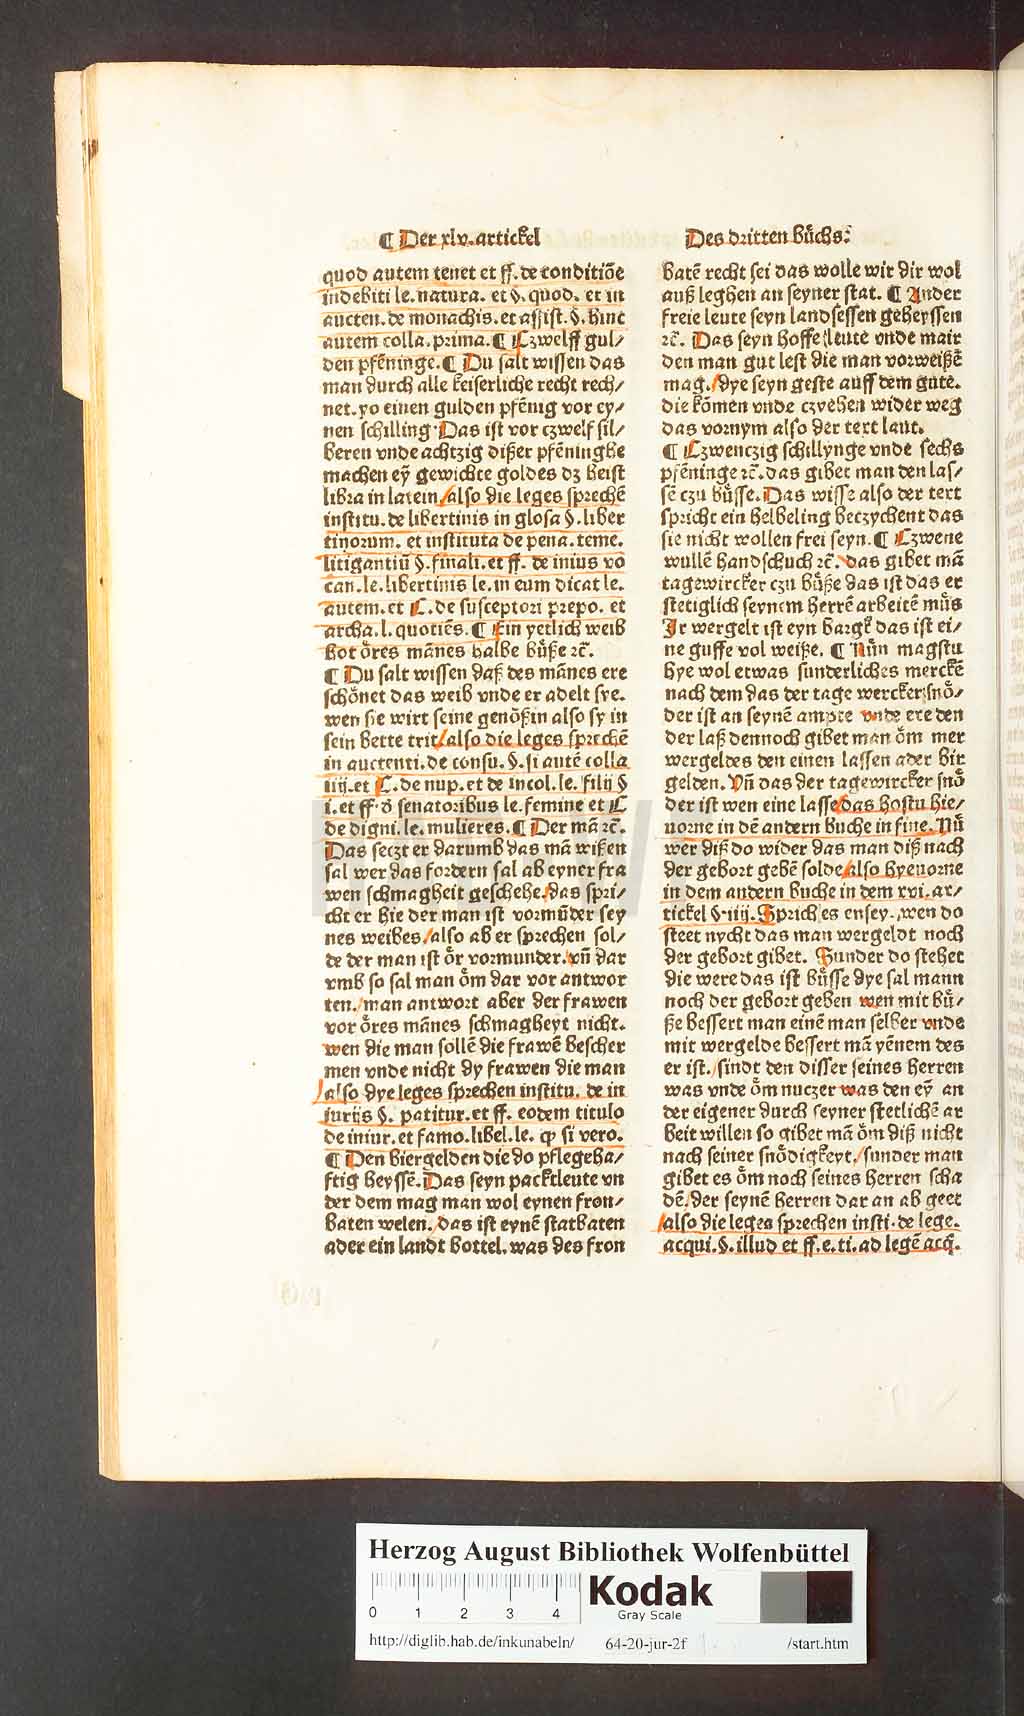 ¶ Der xlv. artickel
quod autem tenet et ff. de conditiōe
indebiti le. natura. et §. quod. et in
aucten. de monachis. et assist. §. hinc
autem colla. prima. ¶ Czwelff gul/
den pfēninge. ¶ Du salt wissen das
man durch alle keiserliche recht rech/
net. yo einen gulden pfēnig vor ey/
nen schilling Das ist vor czwelf sil/
beren vnde achtzig dißer pfēninghe
machen eȳ gewichte goldes dz heist
libra in latein/also die leges sprechē
institu. de libertinis in glosa §. liber
tinorum. et instituta de pena. teme.
litigantiū §. finali. et ff. de inius vo
can. le. libertinis le. in eum dicat le.
autem. et C. de susceptori prepo. et
archa. l. quotiēs. ¶ Ein yetlich weib
hot ōres mānes halbe bůße ꝛc̄.
¶ Du salt wissen daß des mānes ere
schōnet das weib vnde er adelt sye.
wen sie wirt seine genōßin also sy in
sein bette trit/also die leges sprechē
in auctenti. de consu. §. si autē colla
iiij. et C. de nup. et de incol. le. filij §
i. et ff. ō senatoribus le. femine et C
de digni. le. mulieres. ¶ Der mā ꝛc̄.
Das seczt er darumb das mā wißen
sal wer das fordern sal ab eyner fra
wen schmagheit geschehe./das spri/
cht er hie der man ist vormůder sey
nes weibes/also ab er sprechen sol/
de der man ist ōr vormunder. vn̄ dar
vmb so sal man ōm dar vor antwor
ten./man antwort aber der frawen
vor ōres mānes schmagheyt nicht.
wen die man sollē die frawē bescher
men vnde nicht dy frawen die man
/also dye leges sprechen institu. de in
iurijs §. patitur. et ff. eodem titulo
de iniur. et famo. libel. le. ꝙ si vero.
¶ Den biergelden die do pflegeha/
ftig heyssē. Das seyn packtleute vn
der dem mag man wol eynen fron/
baten welen./das ist eynē statbaten
ader ein landt bottel. was des fron
Des dritten Bůchs:
batē recht sei das wolle wir dir wol
auß leghen an seyner stat. ¶ Ander
freie leute seyn landsessen geheyssen
ꝛc̄. Das seyn hoffe leute vnde mair
den man gut lest die man vorweißē
mag./dye seyn geste auff dem gute.
die kōmen vnde czyehen wider weg
das vornym also der text laut.
¶ Czwenczig schillynge vnde sechs
pfēninge ꝛc̄. das gibet man den las/
sē czu bůsse. Das wisse also der text
spricht ein helbeling beczychent das
sie nicht wollen frei seyn. ¶ Czwene
wullē handschuch ꝛc̄. das gibet mā
tagewircker czu bůße das ist das er
stetiglich seynem herrē arbeitē můs
Ir wergelt ist eyn bargk das ist ei/
ne guffe vol weiße. ¶ Nůn magstu
hye wol etwas sunderliches merckē
nach dem das der tage wercker snȫ/
der ist an seynē ampte vnde ere den
der laß dennoch gibet man ōm mer
wergeldes den einen lassen ader bir
gelden. Vn̄ das der tagewircker snȫ
der ist wen eine lasse/das hostu hie/
uorne in dē andern buche in fine. Nů
wer diß do wider das man diß nach
der gebort gebē solde/also hyeuorne
in dem andern buche in dem xvi. ar/
tickel §. iiij. Sprich es ensey., wen do
steet nycht das man wergeldt noch
der gebort gibet. Sunder do stehet
die were das ist bůsse dye sal mann
noch der gebort geben wen mit bů/
ße bessert man einē man selber vnde
mit wergelde bessert mā yēnem des
er ist./sindt den disser seines herren
was vnde ōm nuczer was den eȳ an
der eigener durch seyner stetlichē ar
beit willen so gibet mā ōm diß nicht
nach seiner snȫdigkeyt./sunder man
gibet es ōm noch seines herren scha
dē. der seynē herren dar an ab geet
/also die leges sprechen insti. de lege.
acqui. §. illud et ff. e. ti. ad legē acq̄.
Herzog August Bibliothek Wolfenbüttel
0 1 2 3 4
Kodak
Gray Scale
http://diglib.hab.de/inkunabeln/ 64-20-jur-2f /start.htm